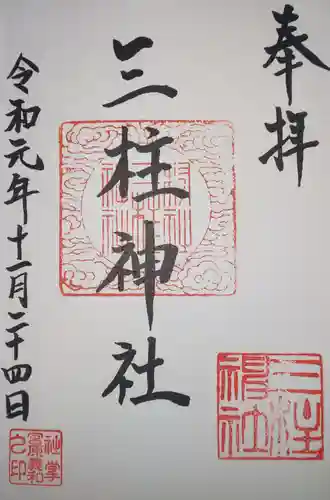 奉拝
三柱神社
三柱
神社
令和元年十一月二十四日